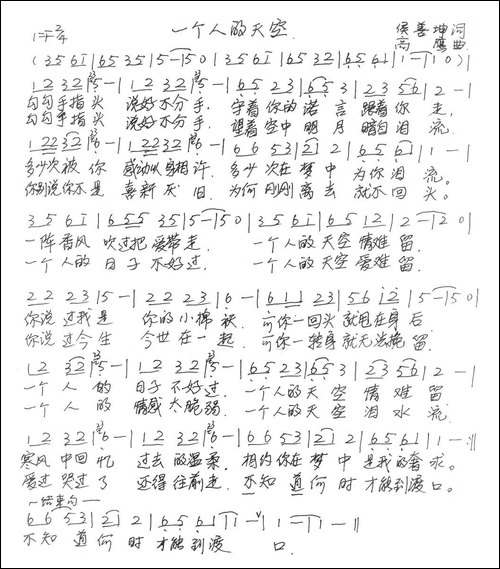 一个人的天空
侯善坤 词
高 鹰 曲
( 3 5 6 i | 6 5 3 5 | 5 — 5 0 | 3 5 6 i | 6 5 3 5 | 6 5 6 1 | 1 — | 1 0 ) |
1 2 3 2 | 5 — | 1 2 3 2 | 5 — | 6 5 2 3 | 6 5 3 | 2 3 5 6 | 2 — |
勾勾手指头 说好不分手, 守着你的诺言 跟着你走,
勾勾手指头 说好不分手, 望着空中明月 暗自泪流.
1 2 2 3 2 | 6 — | 1 2 2 3 2 | 6 — | 6 6 5 3 | 2 1 2 | 6 5 6 1 | 1 — |
多少次被你 感动以身相许. 多少次在梦中 为你泪流。
你别说你不是 喜新厌旧. 为何刚刚离去 就不回头。
3 5 6 i | 6 5 5 3 5 | 5 — | 5 0 | 3 5 6 i | 6 5 1 2 | 2 — | 2 0 |
一阵香风 吹过把爱带走. 一个人的天空 情难留.
一个人的日子不好过. 一个人的天空爱难留.
2 2 2 3 | 5 — | 2 2 2 3 | 6 — | 6 1 1 2 3 | 5 6 i 2 | 5 — | 5 0 |
你说过我是 你的小棉袄. 可你一回头就甩在身后
你说过今生 今世在一起. 可你一转身就无法挽留
1 2 3 2 | 5 — | 1 2 3 2 | 5 — | 6 5 2 3 | 6 5 3 | 2 3 5 6 | 2 — |
一个人的 日子不好过. 一个人的天空 情难留
一个人的 情感太脆弱. 一个人的天空 泪水流.
1 2 3 2 | 6 — | 1 2 3 2 | 6 — | 6 6 5 3 | 2 1 2 | 6 5 6 1 | 1 — :‖
寒风中回忆 过去的温柔. 相约你在梦中是我的奢求。
爱过哭过了 还得往前走. 不知道何时才能到渡口。
结束句
6 6 5 3 | 2 1 2 | 6 5 6 1 | 1 — | 1 — | 1 — ‖
不知道何时才能到渡 口.